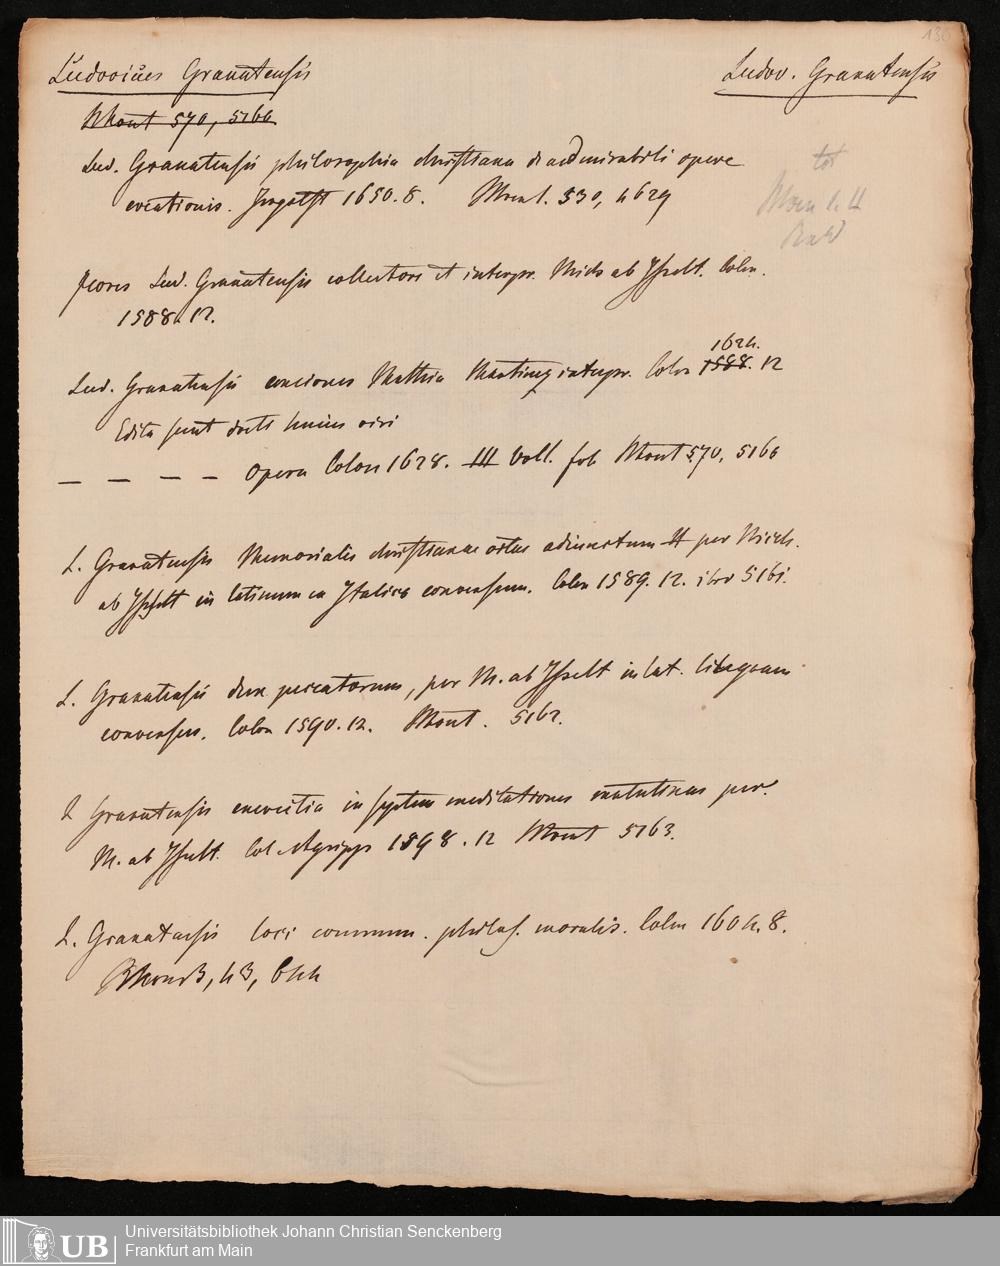 136
Ludovicus Granatensis
Ludov. Granatensis
Mont 570, 5160
Lud. Granatensis philosophia christiana de admirabili opere
creationis. Ingolst 1650. 8. 530, 4629
tot
flores Lud. Granatensis collectore et interpr. Mich ab Isselt. Colon.
1588. 12.
Lud. Granatensis conciones Matthia Martinez interpr. Colon 1588. 1624. 12
Edita sunt docti huius viri
— — — — Opera Colon 1628. III Voll. fol Mont 570, 5160
L. Granatensis Memorialis christianae vitae adiunctum II per Mich.
ab Isselt in latinum ex Italico conversum. Colon 1589. 12. ibid 5161.
L. Granatensis dux peccatorum, per M. ab Isselt in lat. linguam
conversus. Colon 1590. 12. Mont. 5162.
L Granatensis exercitia in septem meditationes matutinas per.
M. ab Isselt. Col Agripp 1598. 12 Mont 5163.
L. Granatensis loci commun. philos. moralis. Colon 1604. 8.
UB
Universitätsbibliothek Johann Christian Senckenberg
Frankfurt am Main